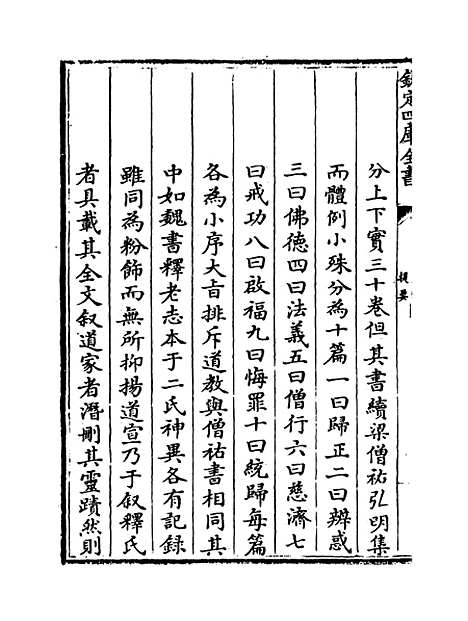 欽定四庫全書
提要
分上下實三十卷但其書續梁僧祐弘明集
而體例小殊分為十篇一曰歸正二曰辨惑
三曰佛德四曰法義五曰僧行六曰慈濟七
曰戒功八曰啟福九曰悔罪十曰統歸每篇
各為小序大旨排斥道教與僧祐書相同其
中如魏書釋老志本于二氏神異各有記録
雖同為粉飾而無所抑揚道宣乃于叙釋氏
者具載其全文叙道家者潛刪其靈蹟然則